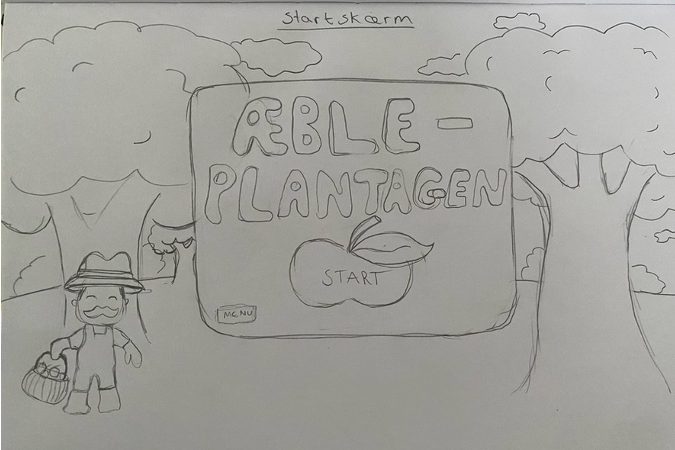 Startskærm
ÆBLE-
PLANTAGEN
START
MENU